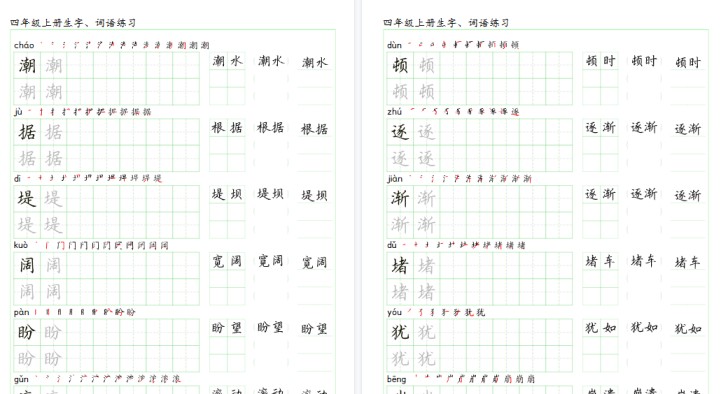 四年级上册生字、词语练习
cháo
潮 潮 潮 水 潮水 潮水
潮 潮
jù
据 据 根 据 根据 根据
据 据
dī
堤 堤 堤 坝 堤坝 堤坝
堤 堤
kuò
阔 阔 宽 阔 宽阔 宽阔
阔 阔
pàn
盼 盼 盼 望 盼望 盼望
盼 盼
gǔn
四年级上册生字、词语练习
dùn
顿 顿 顿 时 顿时 顿时
顿 顿
zhú
逐 逐 逐 渐 逐渐 逐渐
逐 逐
jiàn
渐 渐 逐 渐 逐渐 逐渐
渐 渐
dǔ
堵 堵 堵 车 堵车 堵车
堵 堵
yóu
犹 犹 犹 如 犹如 犹如
犹 犹
bēng